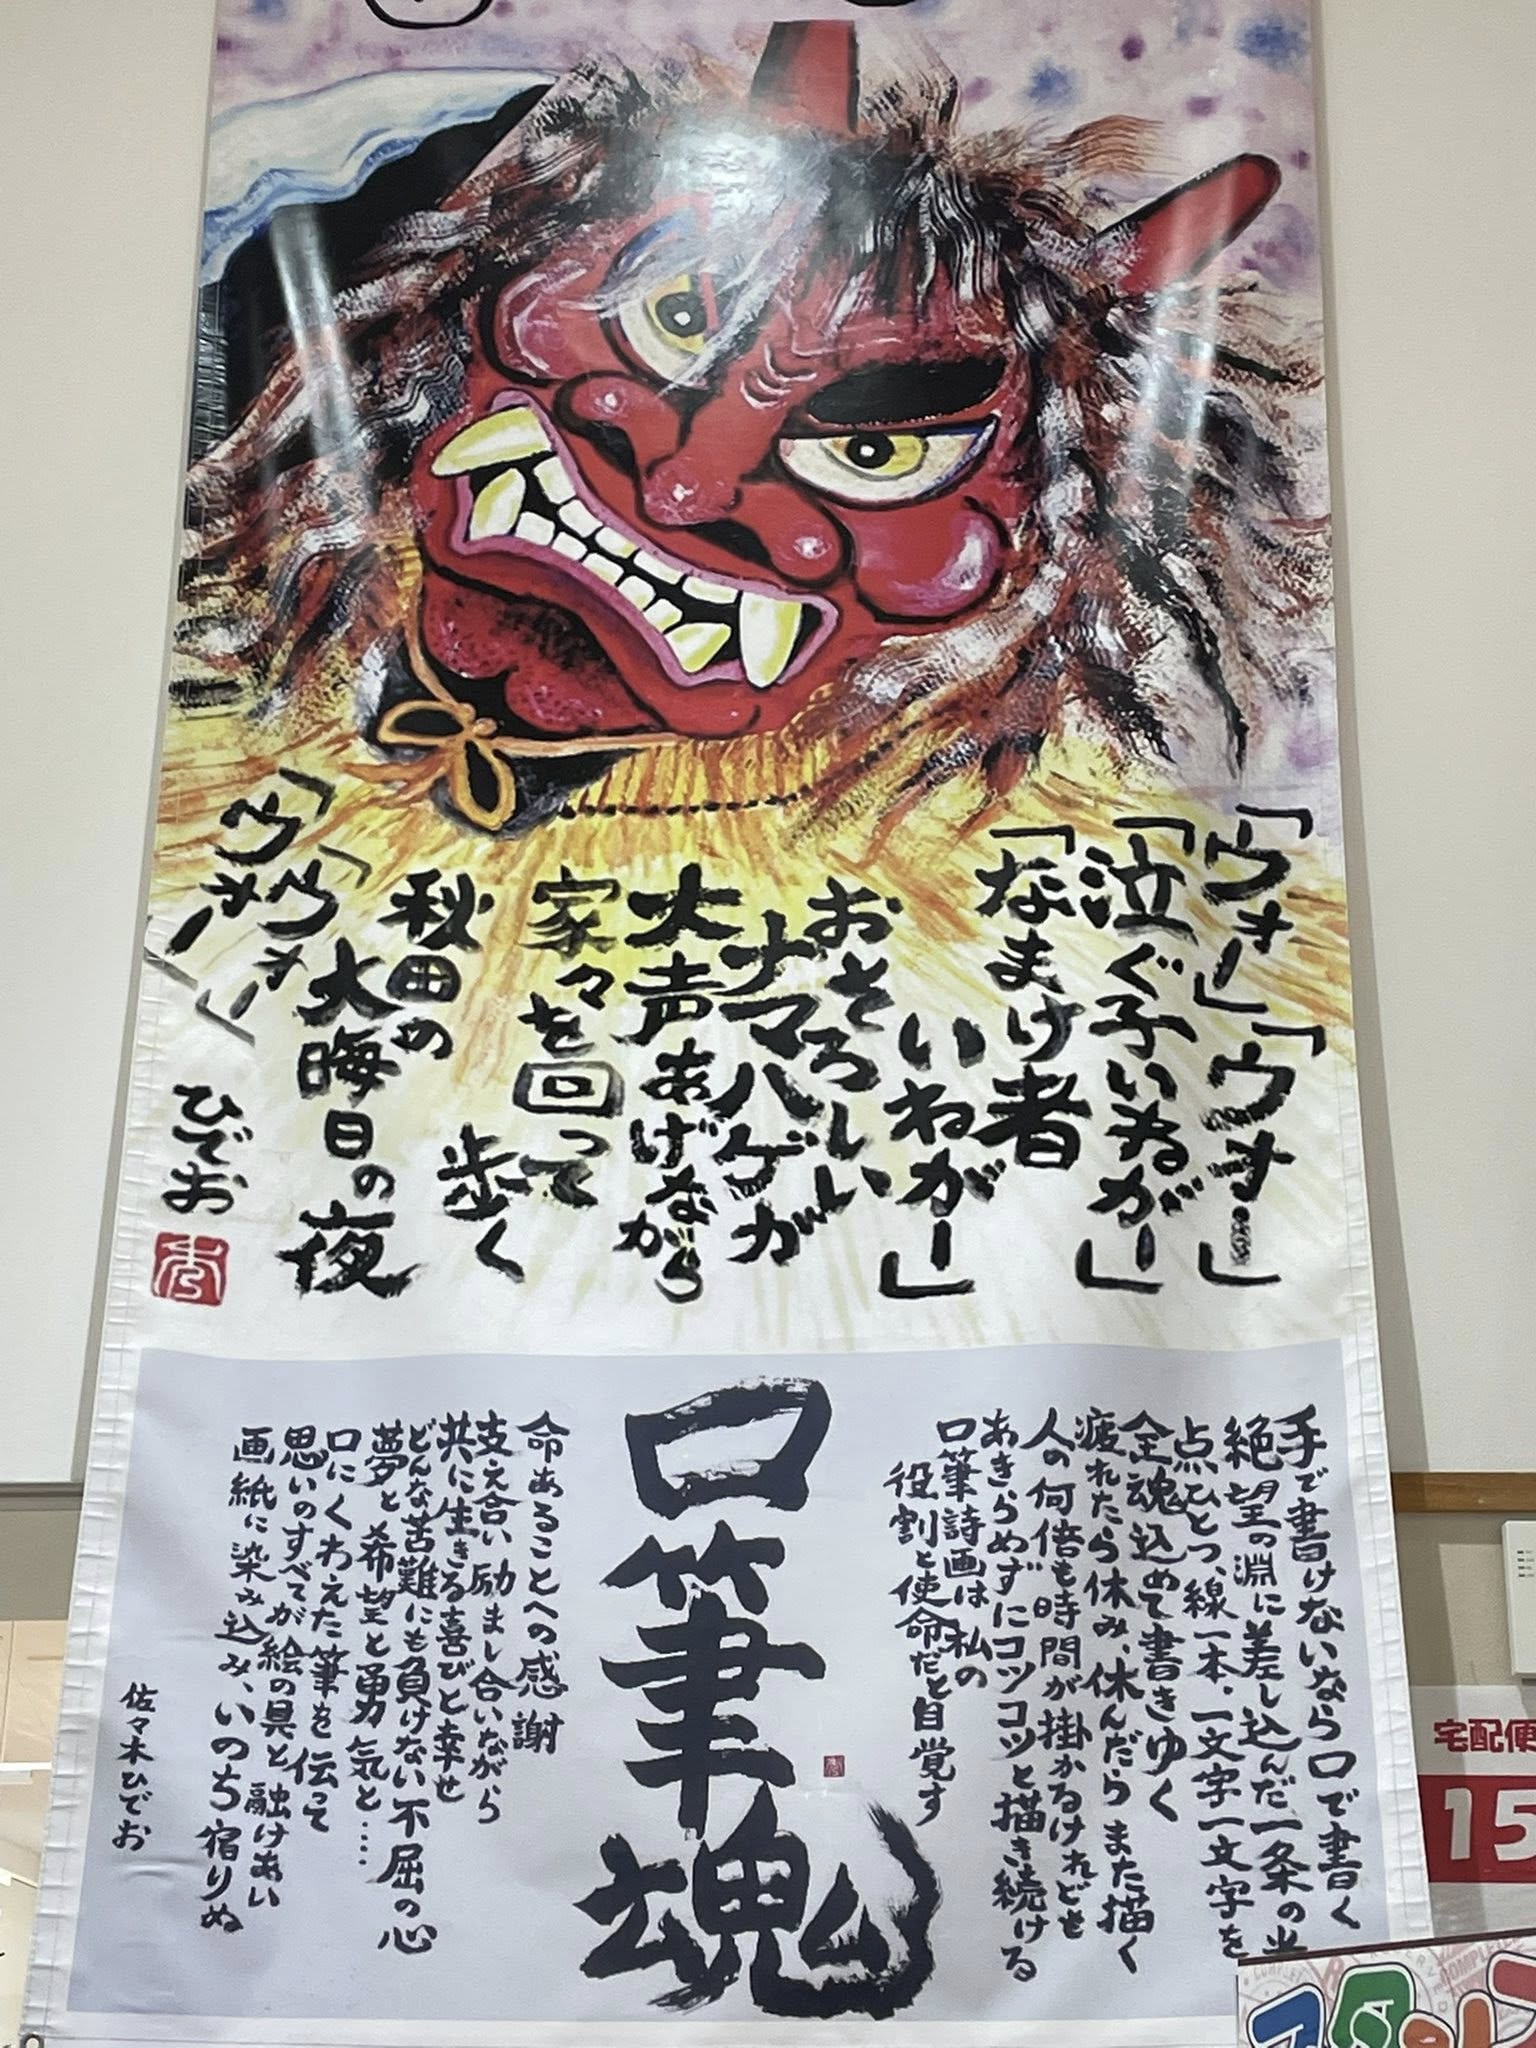 「ウォー」「ウォー」
「泣ぐ子いねがー」
「なまけ者
いねがー」
おそろしい
ナマハゲが
大声あげながら
家々を回って
歩く
秋田の
大晦日の夜
「ウォー」
「ウォー」
ひでお
手で書けないなら口で書く
絶望の淵に差し込んだ一条の光
点ひとつ、線一本、一文字一文字を
全魂込めて書きゆく
疲れたら休み、休んだら また描く
人の何倍も時間が掛かるけれども
あきらめずにコツコツと描き続ける
口筆詩画は 私の
役割と使命だと自覚す
口筆魂
命あることへの感謝
支え合い励まし合いながら
共に生きる喜びと幸せ
どんな苦難にも負けない不屈の心
夢と希望と勇気と……
口にくわえた筆を伝って
思いのすべてが絵の具と融けあい
画紙に染み込み、いのち宿りぬ
佐々木ひでお
宅配便
15